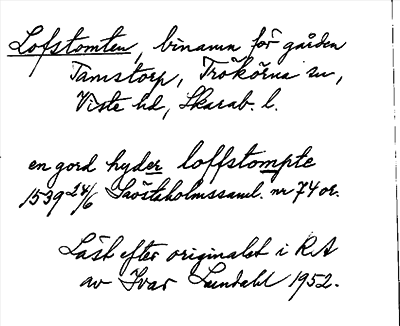 Lofstomten, binamn för gården
Tamstorp, Trökörna sn,
Viste hd, Skarab. l.
en gord hyder loffstompte
1539 24/6 Sjöstaholmssaml. nr 74 or.
Läst efter originalet i RA
av Ivar Lundahl 1952.